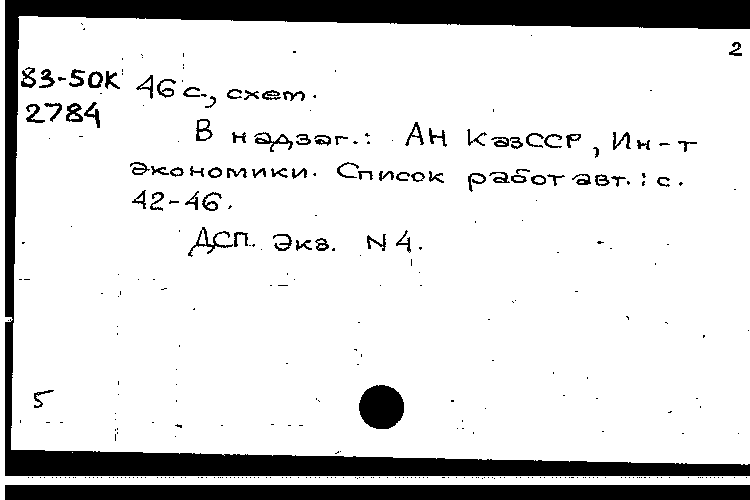 2
83-50К 46 с., схем.
2784
В надзаг.: АН КазССР, Ин-т
экономики. Список работ авт.: с.
42-46.
ДСП. Экз. N 4.
5